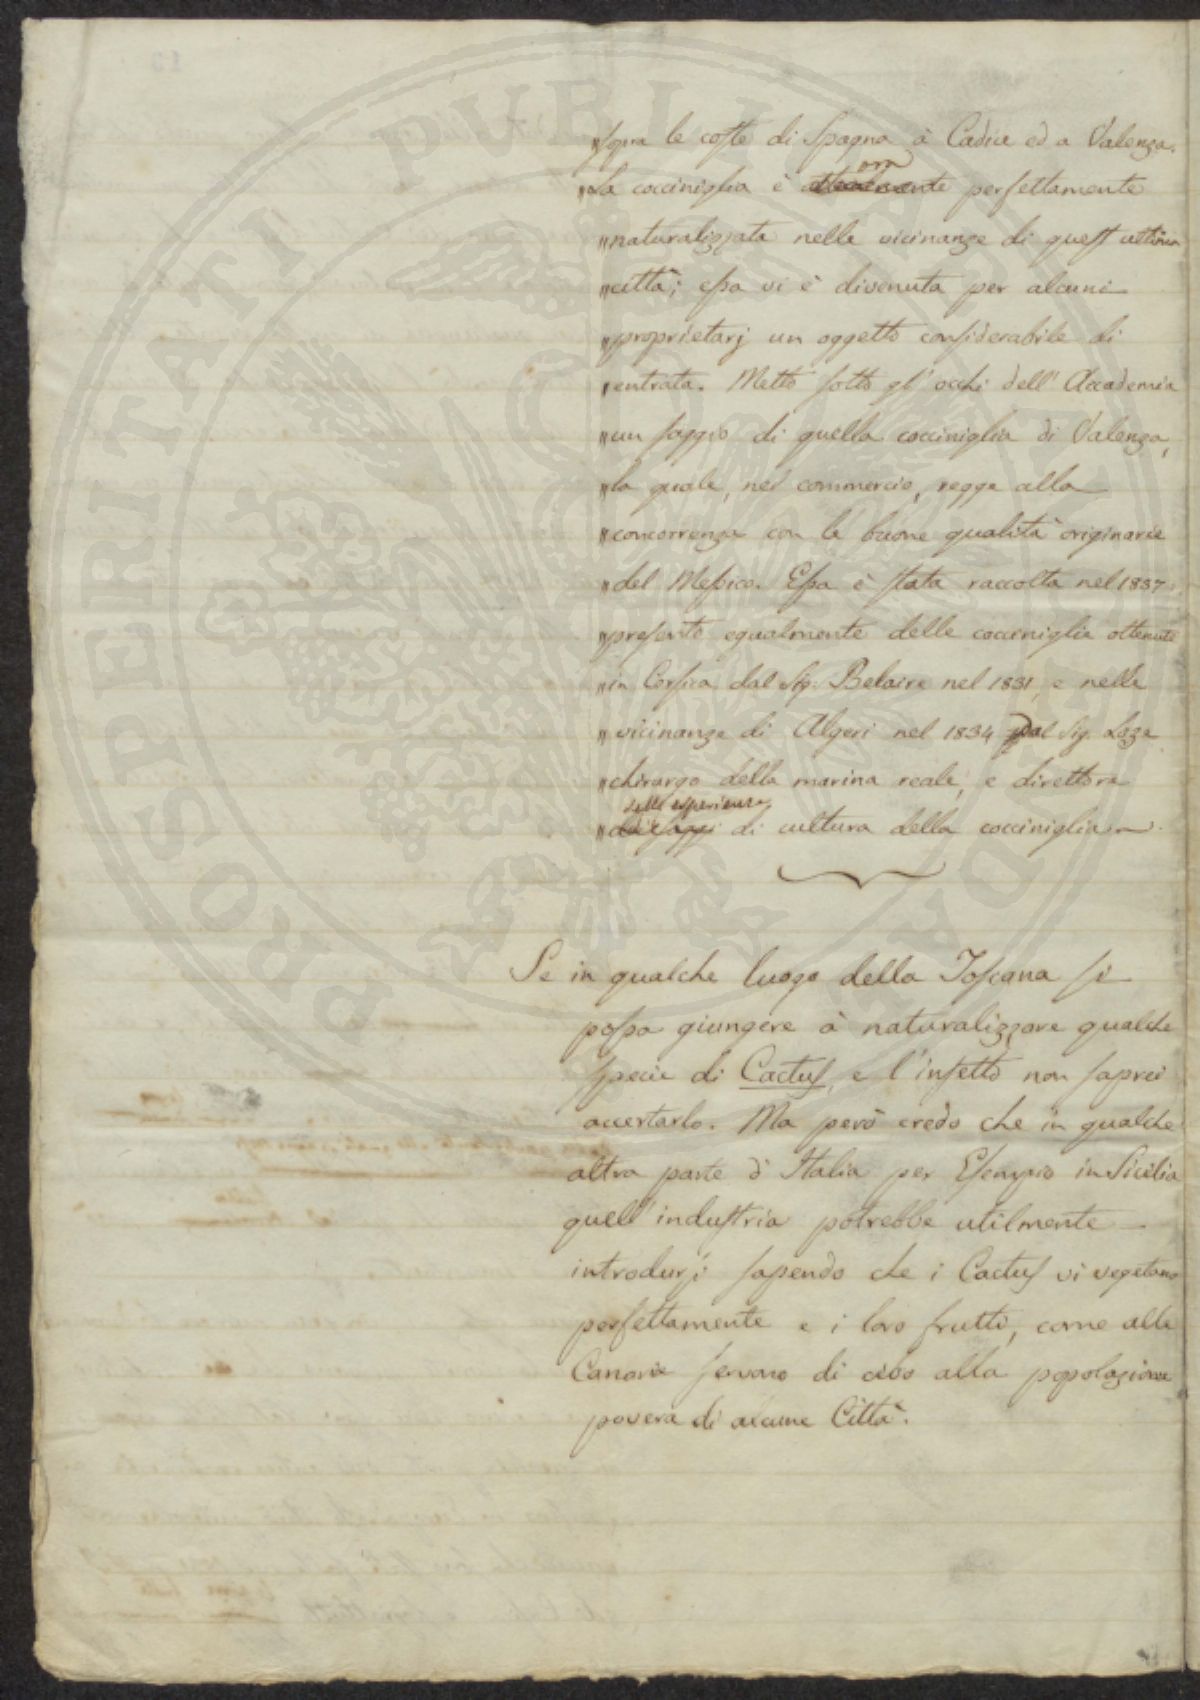 "sopra le coste di Spagna à Cadice ed a Valenza.
ora
"La cocciniglia è attualmente perfettamente
"naturalizzata nelle vicinanze di quest'ultima
"città; essa vi è divenuta per alcuni
"proprietarj un oggetto considerabile di
"entrata. Metto sotto gl'occhi dell'Accademia
"un saggio di quella cocciniglia di Valenza,
"la quale, nel commercio, regge alla
"concorrenza con le buone qualità originarie
"del Messico. Essa è stata raccolta nel 1837.
"presento egualmente delle cocciniglie ottenute
"in Corsica dal Sig. Belaire nel 1831, e nelle
"vicinanze di Algeri nel 1834 dal Sig. Loze
"chirurgo della marina reale, e direttore
delle esperienze
"dei saggi di cultura della cocciniglia
Se in qualche luogo della Toscana si
possa giungere à naturalizzare qualche
specie di Cactus, e l'insetto non saprei
accertarlo. Ma però credo che in qualche
altra parte d'Italia per Esempio in Sicilia
quell'industria potrebbe utilmente
introdursi sapendo che i Cactus vi vegetano
perfettamente e i loro frutti, come alle
Canarie servono di cibo alla popolazione
povera di alcune Città.
PROSPERITATI PUBLICAE